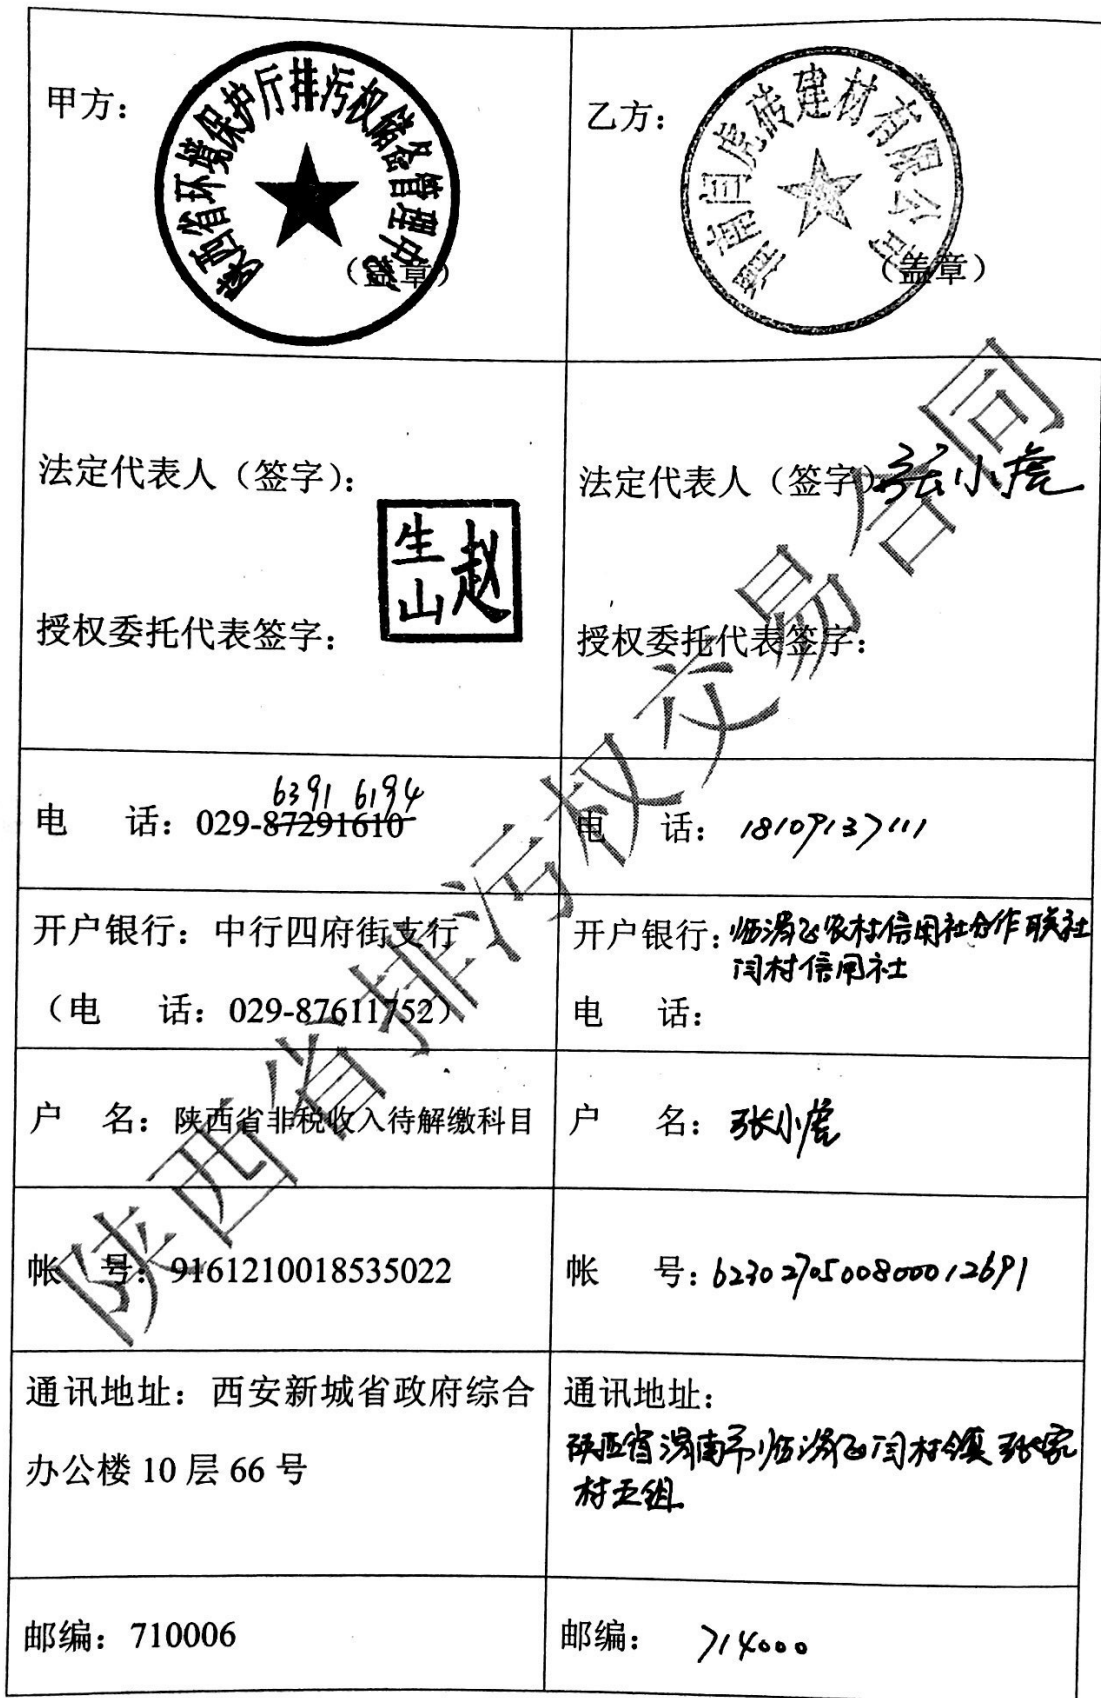 甲方：
陕西省环境保护厅排污权储备管理中心
（盖章）
乙方：
渭南闫虎砖建材有限公司
（盖章）
法定代表人（签字）：
赵
生山
授权委托代表签字：
法定代表人（签字） 张小虎
授权委托代表签字：
6391 6194
电 话：029-87291610
电 话：18109137111
开户银行：中行四府街支行
（电 话：029-87611752）
开户银行：临渭区农村信用社合作联社
闫村信用社
电 话：
户 名：陕西省非税收入待解缴科目
户 名：张小虎
帐 号：9161210018535022
帐 号：6230270500800012691
通讯地址：西安新城省政府综合
办公楼 10 层 66 号
通讯地址：
陕西省渭南市临渭区闫村镇张家
村五组
邮编：710006
邮编：714000
陕西省排污权交易合同